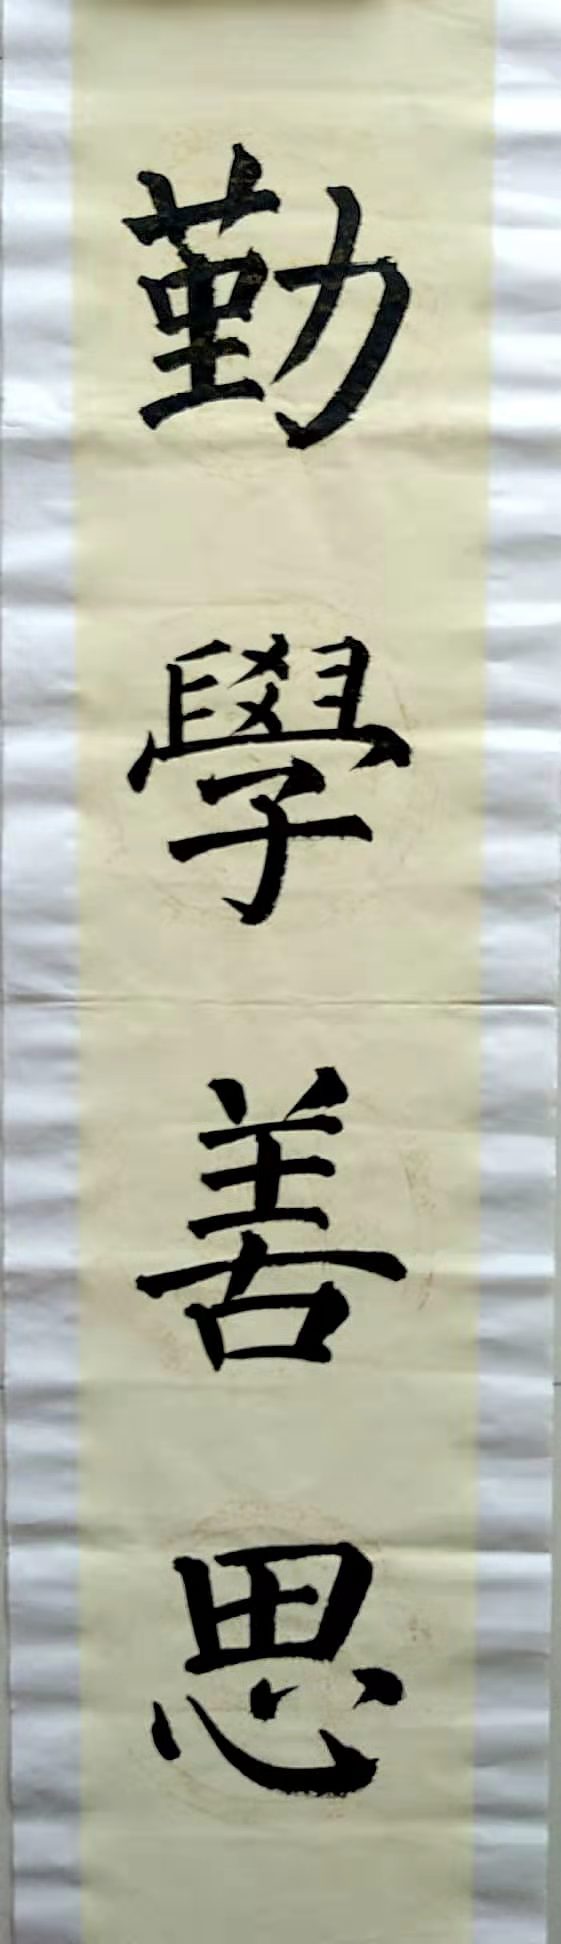 勤學善思